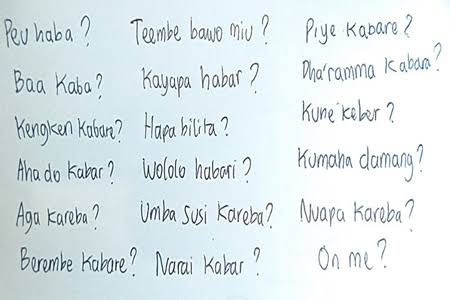 Peu haba? Teembe bawo miu? Piye kabare?
Baa kaba? Kayapa habar? Dha'ramma kabara?
Kengken Kabare? Hapa bilita? Kune' kebur?
Aha do kabar? Wololo habari? Kumaha damang?
Aga kareba? Umba susi kareba? Nuapa kareba?
Berembe kabare? Narai kabar? On me?